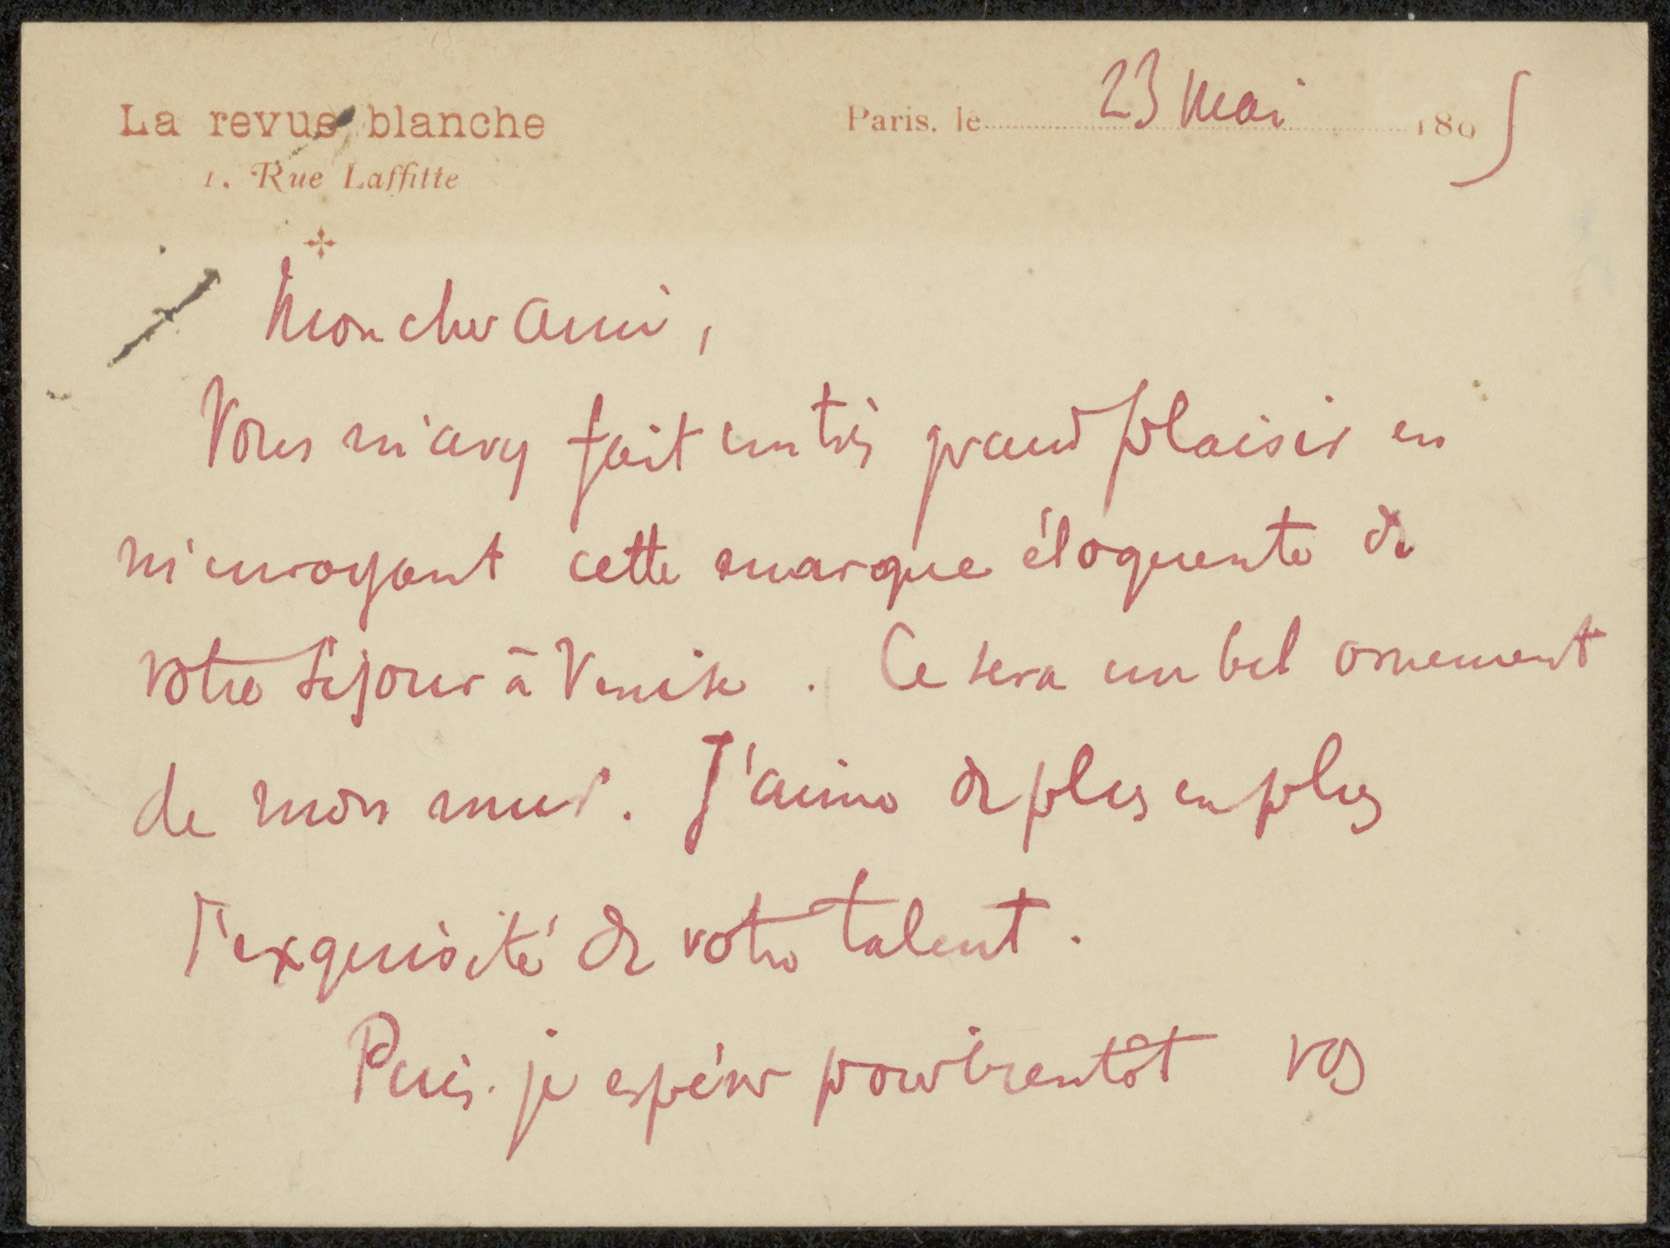 La revue blanche
1, Rue Laffitte
Paris, le 23 Mai 1895
Mon cher ami,
Vous m'avez fait un très grand plaisir en
m'envoyant cette marque éloquente de
votre séjour à Venise. Ce sera un bel ornement
de mon mur. J'aime de plus en plus
l'exquisité de votre talent.
Puis-je espérer pour bientôt vos